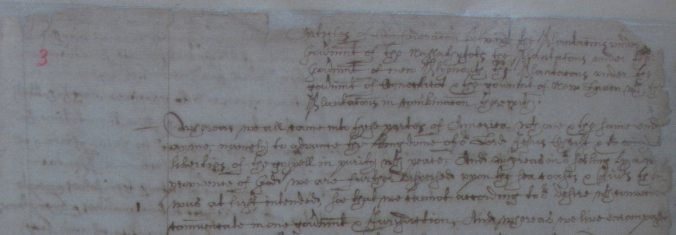 3
Articles of Confederation betwixt the Plantations under
Government of the Massachusetts the Plantations under the
Government of New Plymouth the Plantations under the
Government of Connecticut & the Government of New Haven with the
Plantations in combination therewith
Whereas we all came into these partes of America with one & the same end
and ayme, namely to advance the kingdome of or Lord Jesus Christ & to enjoy
liberties of the gospell in purity with peace. And whereas in or setling by a
providence of God, we are further dispersed upon the sea coasts & rivers then
was at first intended, so that we cannot according to or desire with
communicate in one government & Jurisdiction, And whereas we live encompassed